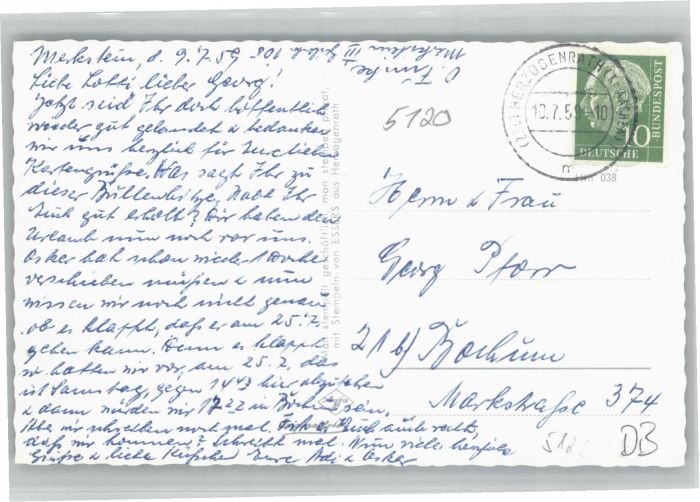 Merkstein, d. 9.7.59
Liebe Lotti, lieber Georg!
Jetzt seid Ihr doch hoffentlich
wieder gut gelandet u bedanken
wir uns herzlich für Eure lieben
Kartengrüße. Was sagt Ihr zu
dieser Bullenhitze, habt Ihr
Euch gut erholt? Wir haben den
Urlaub nun noch vor uns.
Oskar hat schon wieder 1 Woche
verschieben müßen u nun
wissen wir noch nicht genau
ob es klappt, daß er am 25.7.
gehen kann. Wenn es klappt
hatten wir vor, am 25.7. das
ist Samstag, gegen 14 43 hier abzufahren
u dann würden wir 17 22 in Bochum sein.
Aber wir schreiben noch mal. Euch auch recht,
daß wir kommen? Schreibt mal. Nun viele herzliche
Grüße u liebe Küßchen Eure u Oskar
Merkstein
man stempelt geschäftlich, man stempelt privat,
mit Stempeln von ESSERS aus Herzogenrath
5120
(22c) HERZOGENRATH (KR AACHEN)
10.7.59-10
m
10
DEUTSCHE
BUNDESPOST
038
Herrn u Frau
Georg Pforr
21b) Bochum
Markstraße 374
512
DB